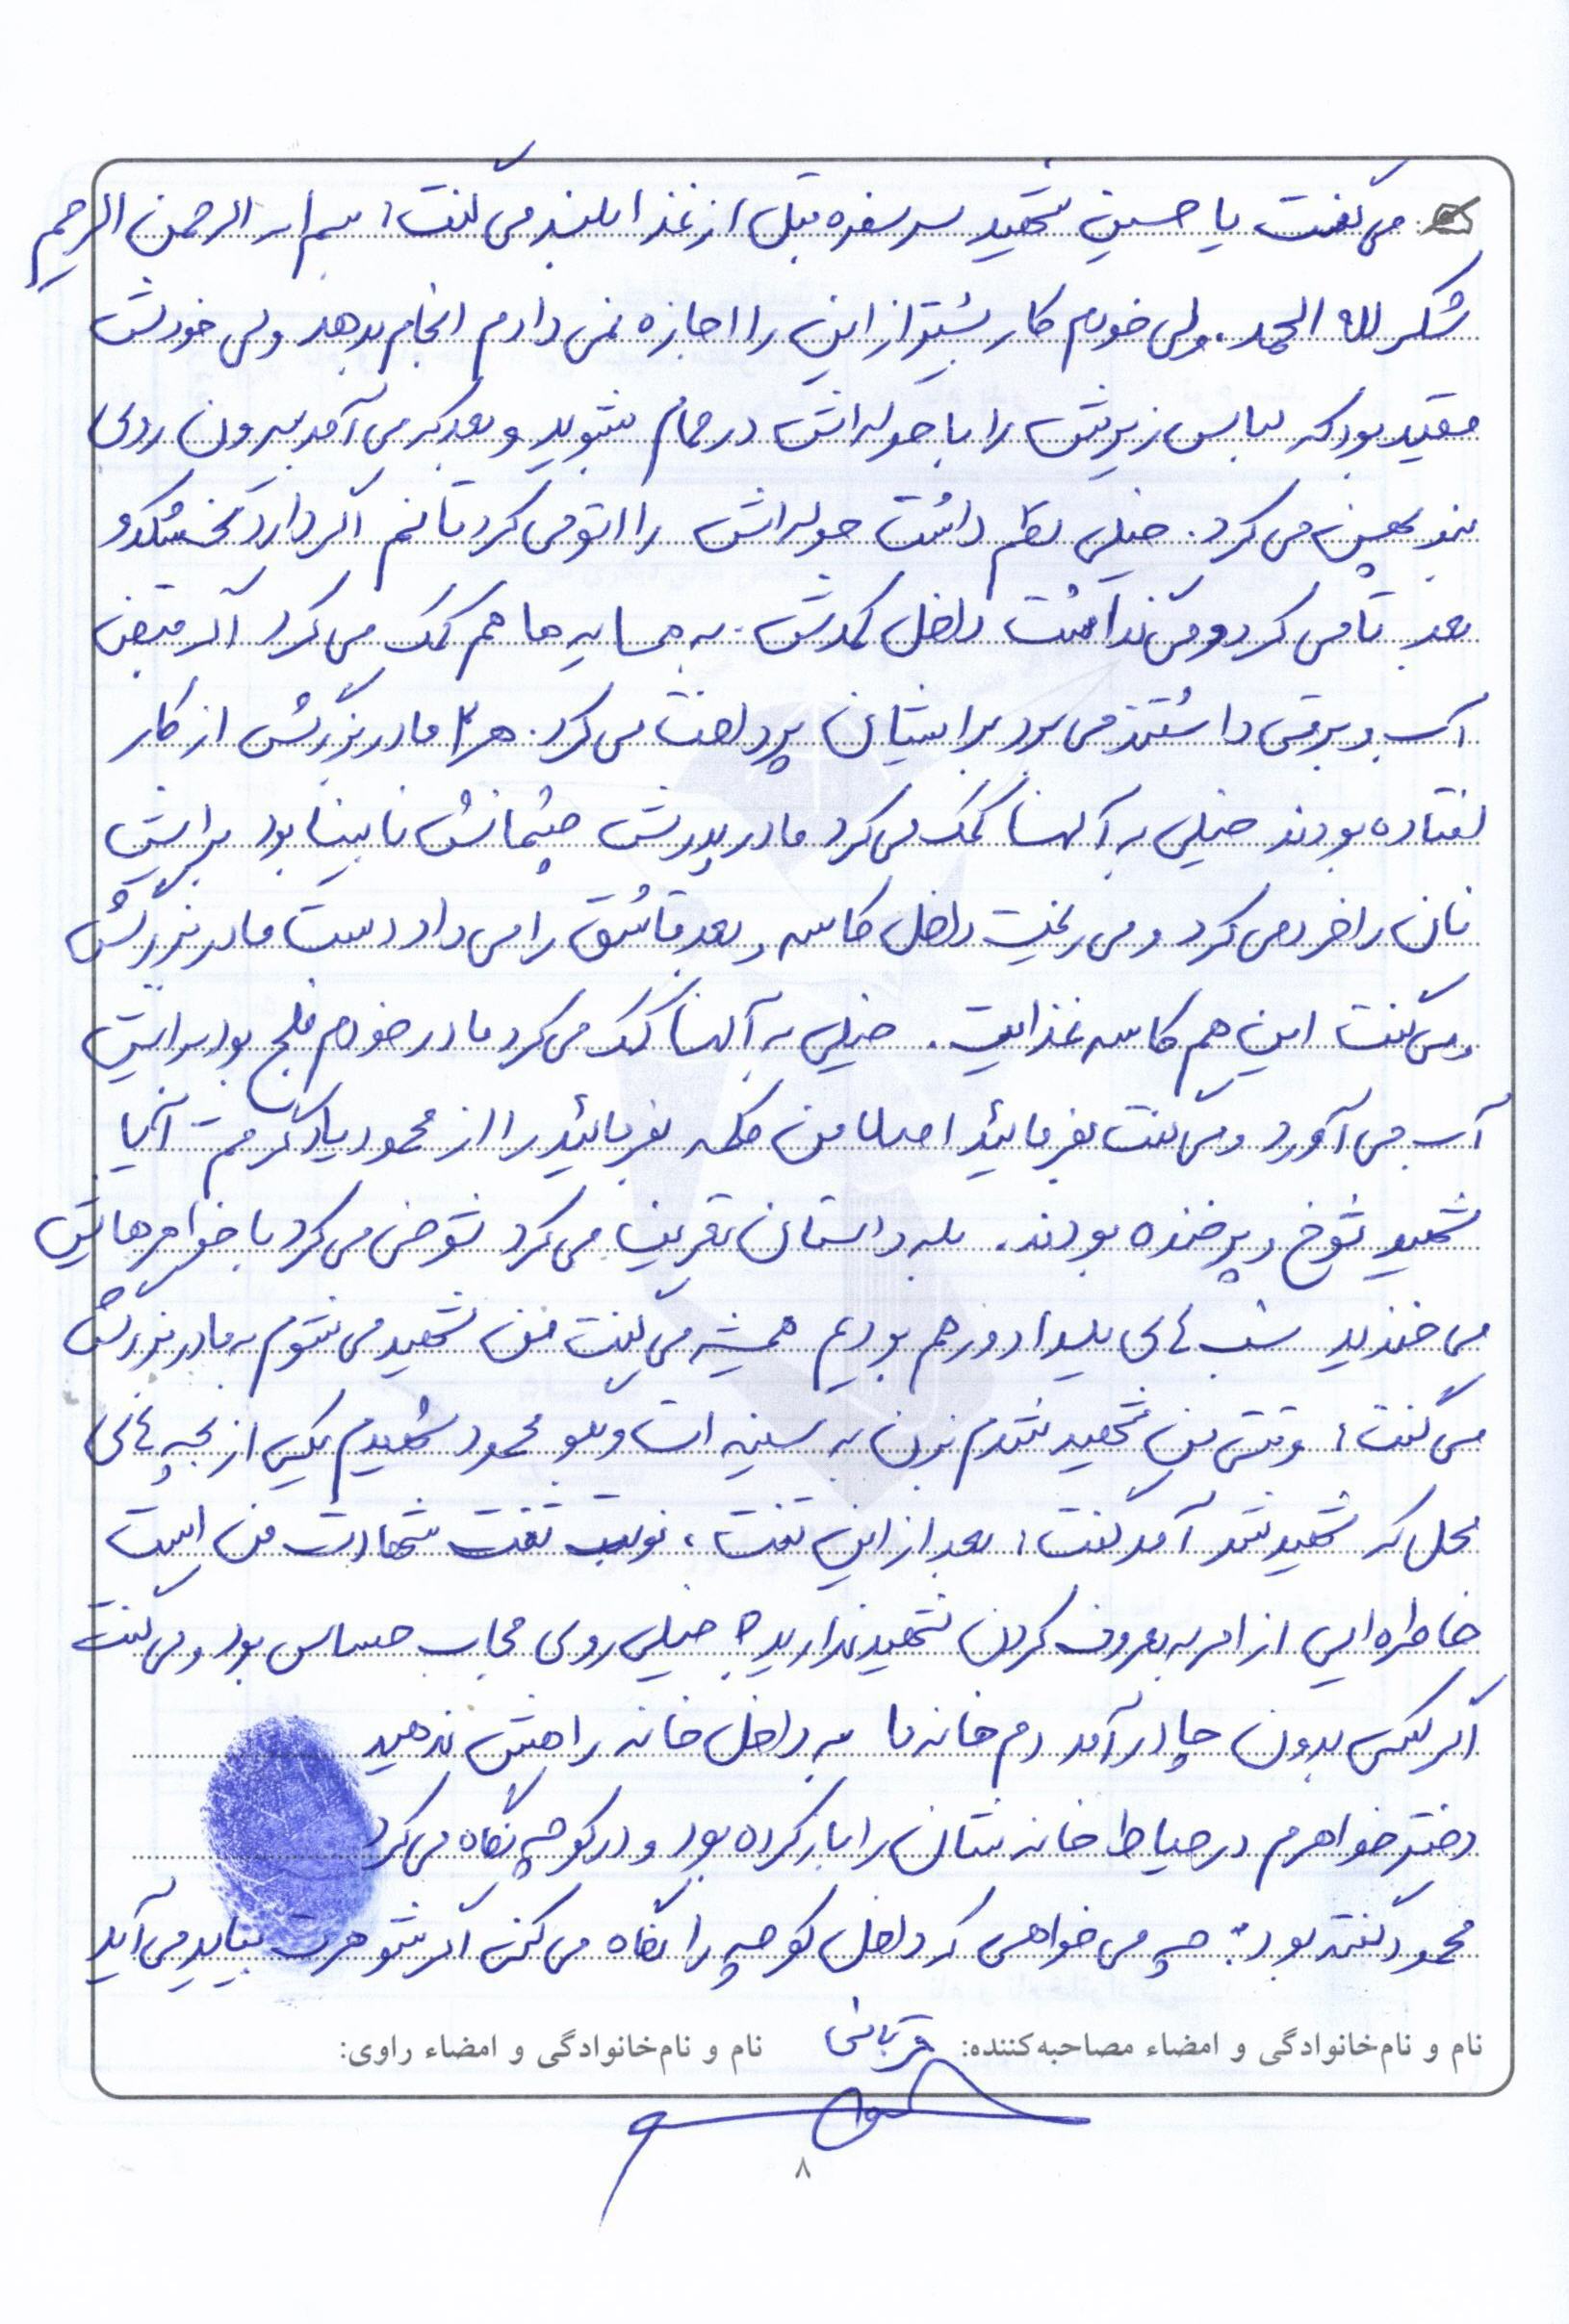 می گفت یا حسین شهید سر سفره قبل از غذا بلند می گفت: بسم الله الرحمن الرحیم
شکر لله الحمد. ولی خودم کار بیشتر از این را اجازه نمی دادم انجام بدهد ولی خودش
مقید بود که لباس زیرش را با حوله اش در حمام بشوید و بعد که می آمد بیرون روی
بند پهن می کرد. خیلی نظم داشت حوله اش را اتو می کرد تا نم اگر دارد خشک و
بعد تا می کرد و می گذاشت داخل کمدش. به همسایه ها هم کمک می کرد اگر قبض
آب و برقی داشتند می برد برایشان پرداخت می کرد. هر ۲ مادربزرگش از کار
افتاده بودند خیلی به آنها کمک می کرد مادر پدرش چشمانش نابینا بود برایش
نان را خرد می کرد و می ریخت داخل کاسه و بعد قاشق را می داد دست مادربزرگش
و می گفت این هم کاسه غذایت. خیلی به آنها کمک می کرد مادر خودم فلج بود برایش
آب می آورد و می گفت بفرمائید اصلا من کلمه بفرمائید را از محمود یاد گرفتم آیا
شهید شوخ و پرخنده بودند. بله داستان تعریف می کرد شوخی می کرد با خواهرهایش
می خندید شب های یلدا دور هم بودیم همیشه می گفت من شهید می شوم به مادربزرگش
می گفت: وقتی من شهید شدم بزن به سینه ات و بگو محمود شهیدم یکی از بچه های
محل که شهید شد آمد گفت: بعد از این گفت، نوبت گفت شهادت من است
خاطره ایی از امر به معروف کردن شهید ندارید؟ خیلی روی حجاب حساس بود و می گفت
اگر کسی بدون چادر آمد دم خانه ما به داخل خانه راهش ندهید
دختر خواهرم در حیاط خانه شان را باز کرده بود و در کوچه نگاه می کرد
محمود گفته بود: چه می خواهی که داخل کوچه را نگاه می کنی اگر شوهرت بیاید می آید
نام و نام‌خانوادگی و امضاء مصاحبه‌کننده: قربانی نام و نام‌خانوادگی و امضاء راوی:
۸